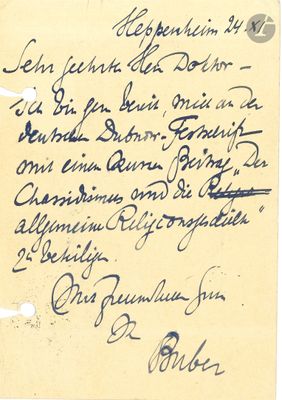 Heppenheim 24. XI
Sehr geehrter Herr Doktor –
ich bin gern bereit, mich an der
deutschen Dubnow-Festschrift
mit einem kurzen Beitrag „Der
Chassidismus und die
allgemeine Religionsgeschichte“
zu beteiligen.
Mit freundlichem Gruss
Ihr
Buber